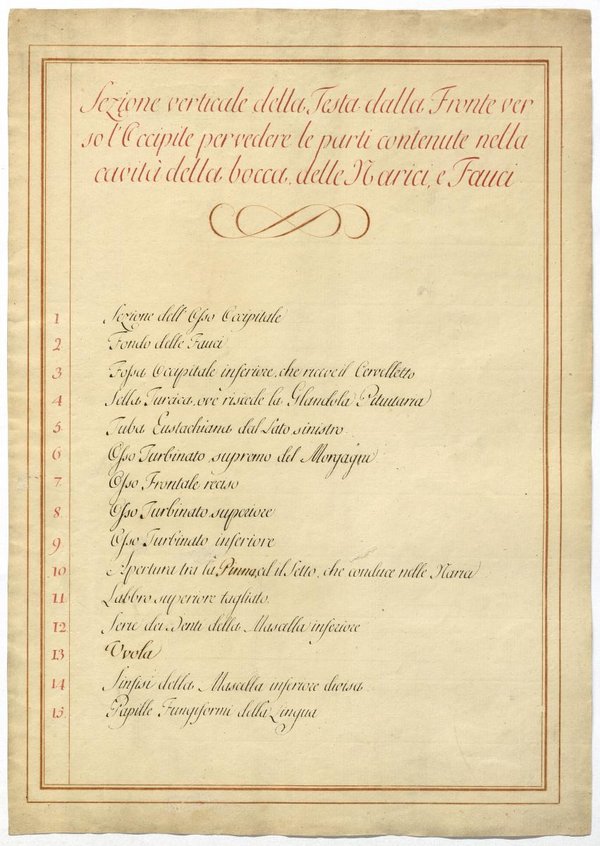 Sezione verticale della Testa dalla Fronte ver
so l'Occipite per vedere le parti contenute nella
cavità della bocca, delle Narici, e Fauci
1 Sezione dell'Osso Occipitale
2 Fondo delle Fauci
3 Fossa Occipitale inferiore, che riceve il Cervelletto
4 Sella Turcica, ov'è risiede la Glandola Pituitaria
5 Tuba Eustachiana dal Lato sinistro
6 Osso Turbinato supremo del Morgagni
7 Osso Frontale reciso
8 Osso Turbinato superiore
9 Osso Turbinato inferiore
10 Apertura tra la Pinna, ed il Setto, che conduce nelle Narici
11 Labbro superiore tagliato
12 Serie dei Denti della Mascella inferiore
13 Uvola
14 Sinfisi della Mascella inferiore divisa
15 Papille Fungiformi della Lingua